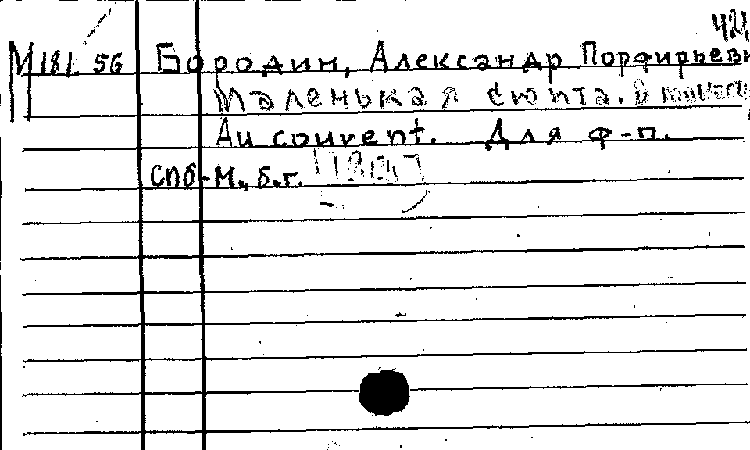 М 181 56 Бородин, Александр Порфирьеви
Маленькая сюита. В
Au couvent. Для ф-п.
Спб-М., б.г.